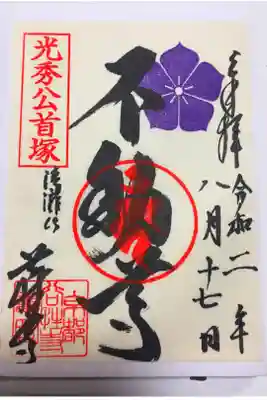 奉拝
令和二年
八月十七日
不動尊
光秀公首塚
清瀧山
谷性寺